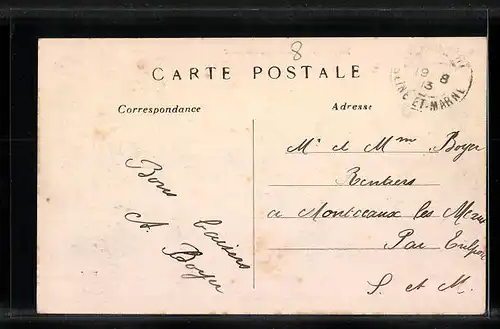 8
CARTE POSTALE
Correspondance
Adresse
19 8
13
SEINE ET-MARNE
Bons baisers
A. Boyer
Mr et Mme Boyer
Rentiers
a Montceaux les Meaux
Par
S. et M.